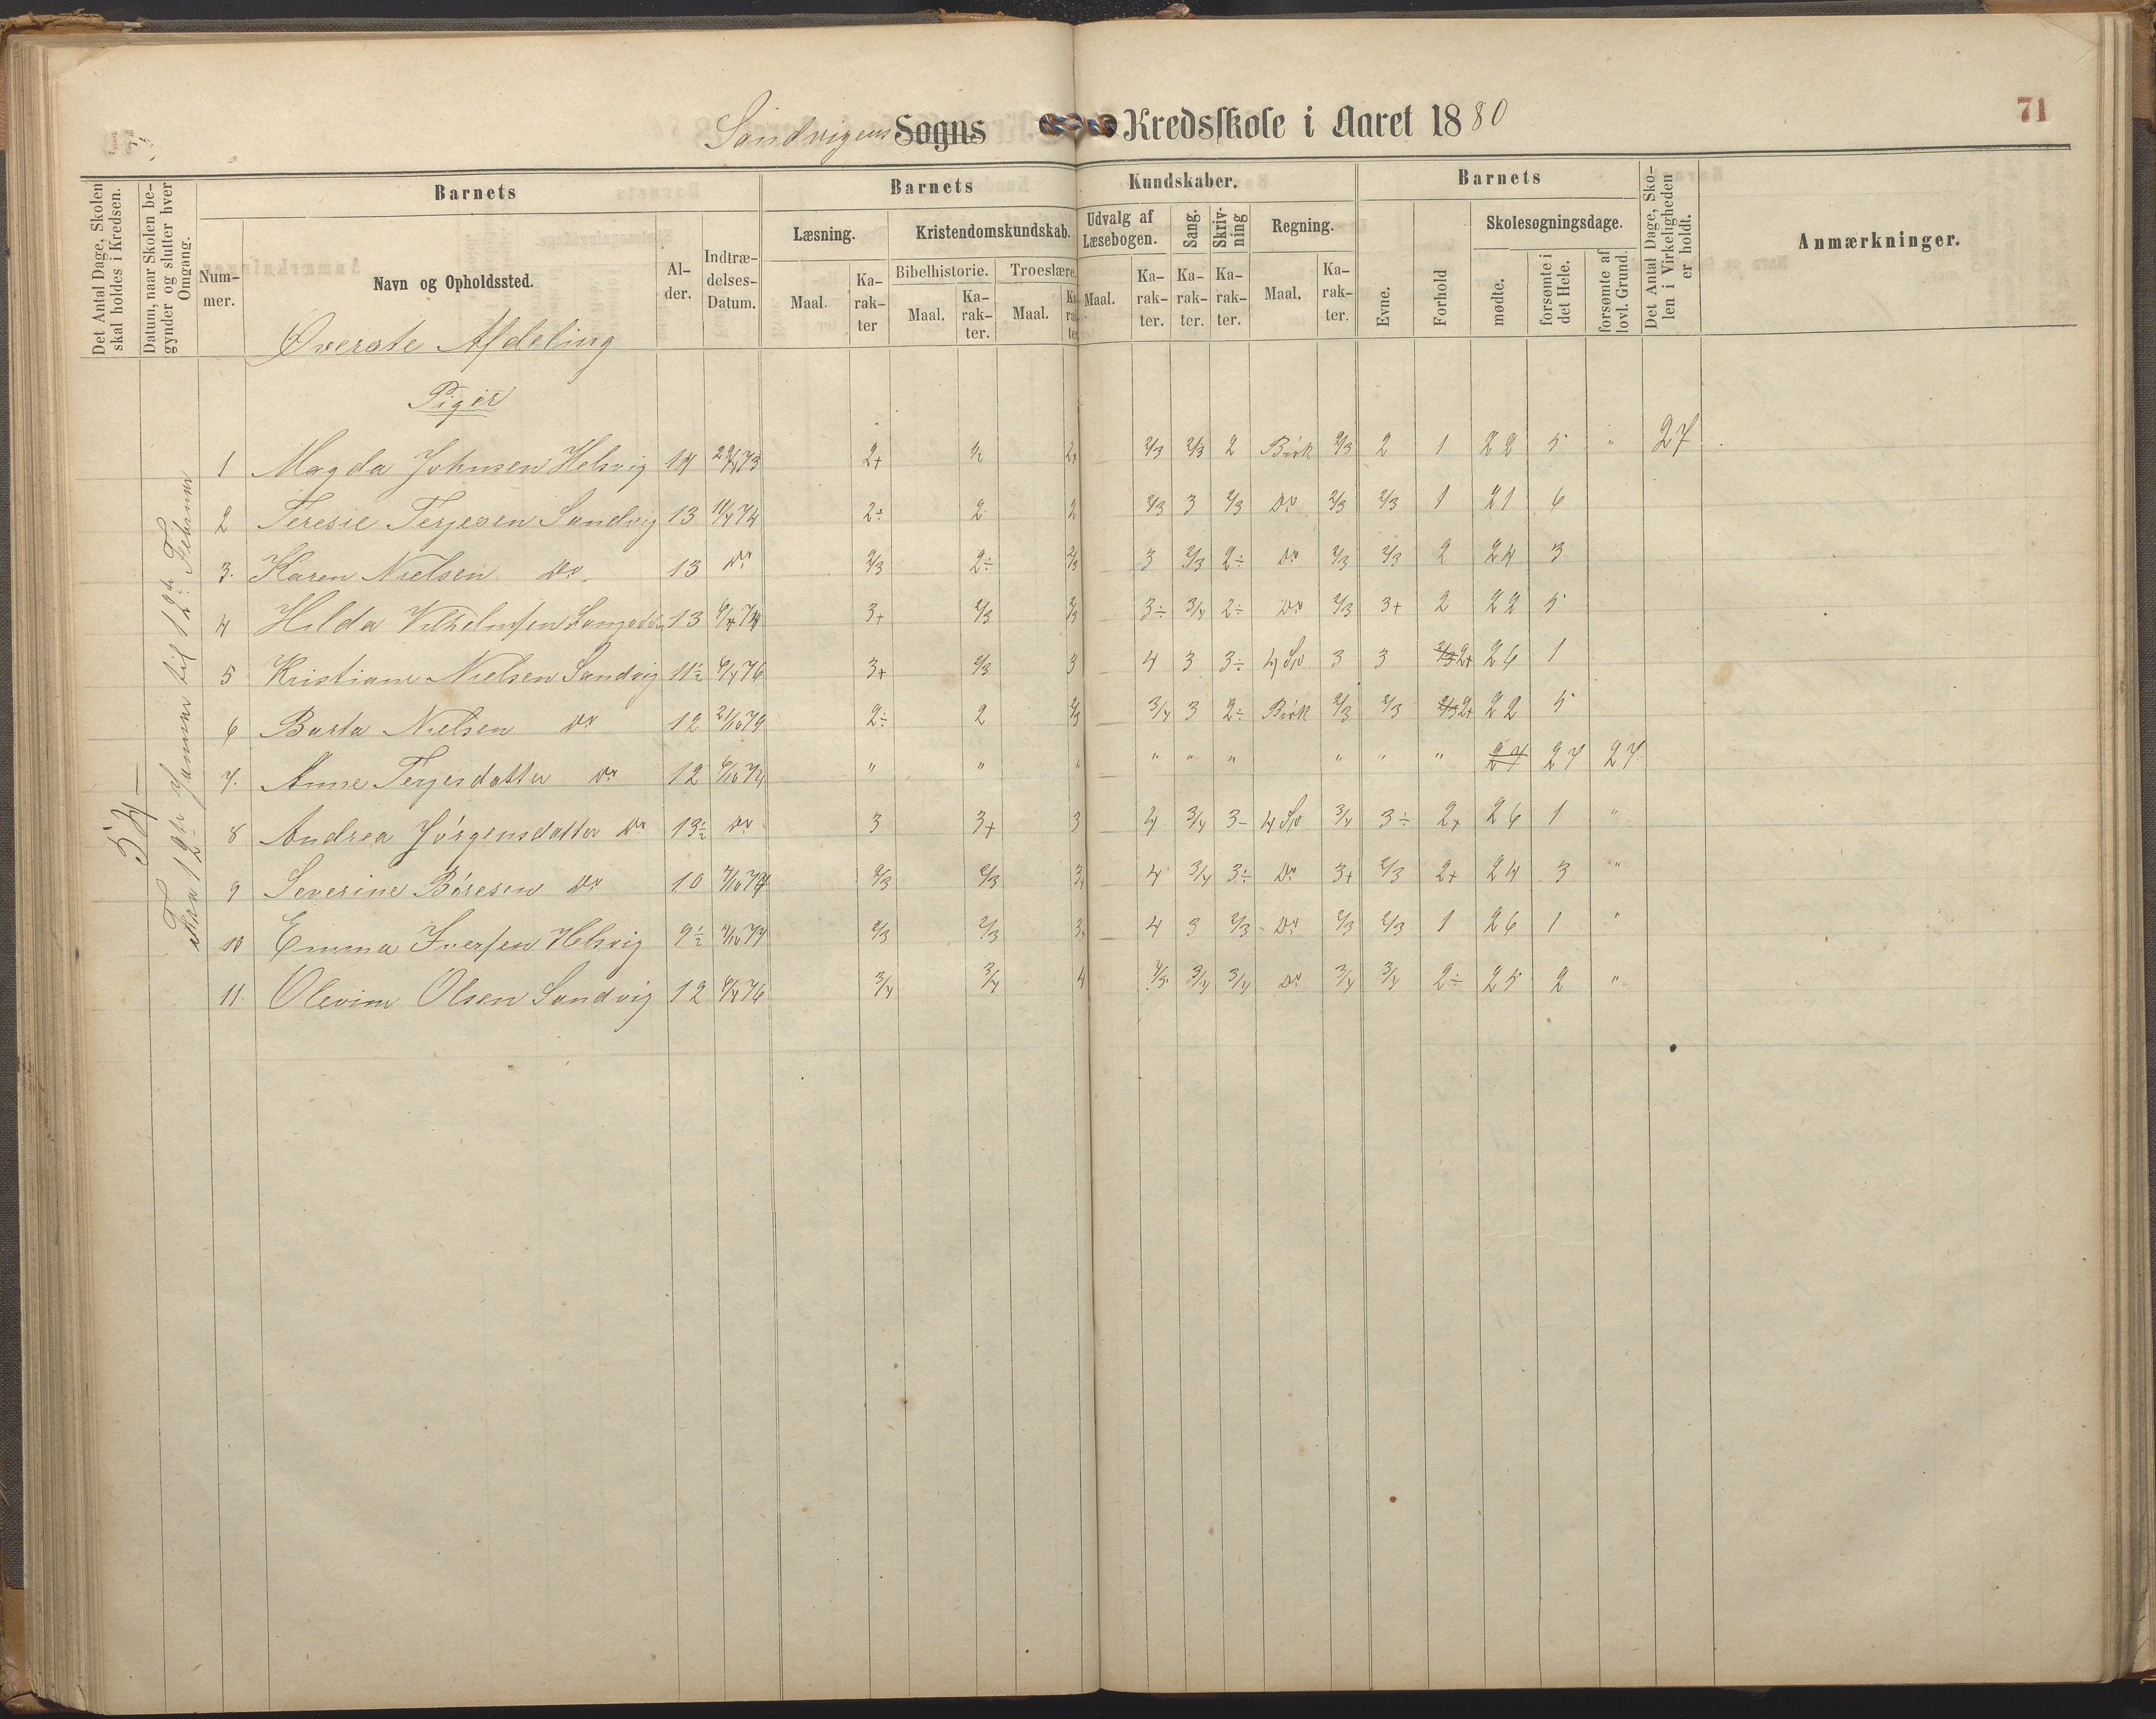 71
Sandvigens Sogns Kredsskole i Aaret 1880
Det Antal Dage, Skolen skal holdes i Kredsen.
Datum, naar Skolen begynder og slutter hver Omgang.
Barnets
Barnets Kundskaber.
Barnets
Det Antal Dage, Skolen i Virkeligheden er holdt.
Anmærkninger.
Nummer. Navn og Opholdssted. Alder. Indtrædelses-Datum.
Læsning. Kristendomskundskab. Udvalg af Læsebogen. Sang. Skrivning Regning. Evne. Forhold Skolesøgningsdage.
Bibelhistorie. Troeslære.
Maal. Karakter Maal. Karakter. Maal. Karakter Maal. Karakter. Karakter. Karakter. Maal. Karakter. mødte. forsømte i det Hele. forsømte af lovl. Grund.
Øverste Afdeling
Piger
54
Fra 12te Januar til 12te Februar
1 Magda Johnsen Helsvig 14 2+ 2/3 2/3 2 Brøk 2/3 2 1 22 5 " 27
2 Teresie Terjesen Sandvig 13 11/4 74 2÷ 2 2 2/3 3 2/3 Do 2/3 2/3 1 21 6
3. Karen Nielsen Do 13 Do 2/3 2÷ 2/3 3 2/3 2÷ Do 2/3 2/3 2 24 3
4 Hilda Vilhelmsen 13 3+ 2/3 2/3 3÷ 3/4 2÷ Do 2/3 3+ 2 22 5
5 Kristiane Nielsen Sandvig 11½ 6/4 76 3+ 2/3 3 4 3 3÷ 4 Sp. 3 3 2/3 2+ 26 1
6 Nielsen Do 12 2÷ 2 2/3 3/4 3 2÷ Brøk 2/3 2/3 2/3 2+ 22 5
7. Anne Terjesdatter Do 12 " " " " " " " " " 27 27 27
8 Andrea Jørgensdatter Do 13½ Do 3 3+ 3 4 3/4 3- 4 Sp 3/4 3÷ 2+ 26 1 "
9 Severine Børesen Do 10 2/3 2/3 3+ 4 3/4 3÷ Do 3+ 2/3 2+ 24 3 "
10 Emma Iversen Helsvig 9½ 2/3 2/3 3+ 4 3 2/3 Do 2/3 2/3 1 26 1 "
11. Olevine Olsen Sandvig 12 6/4 76 3/4 3/4 4 4/5 3/4 3/4 Do 3/4 3/4 2÷ 25 2 "